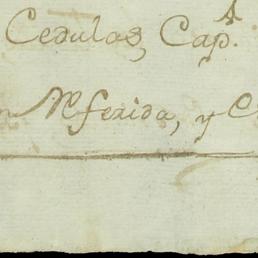 Cedulas, Capˢ.
Mferida, y